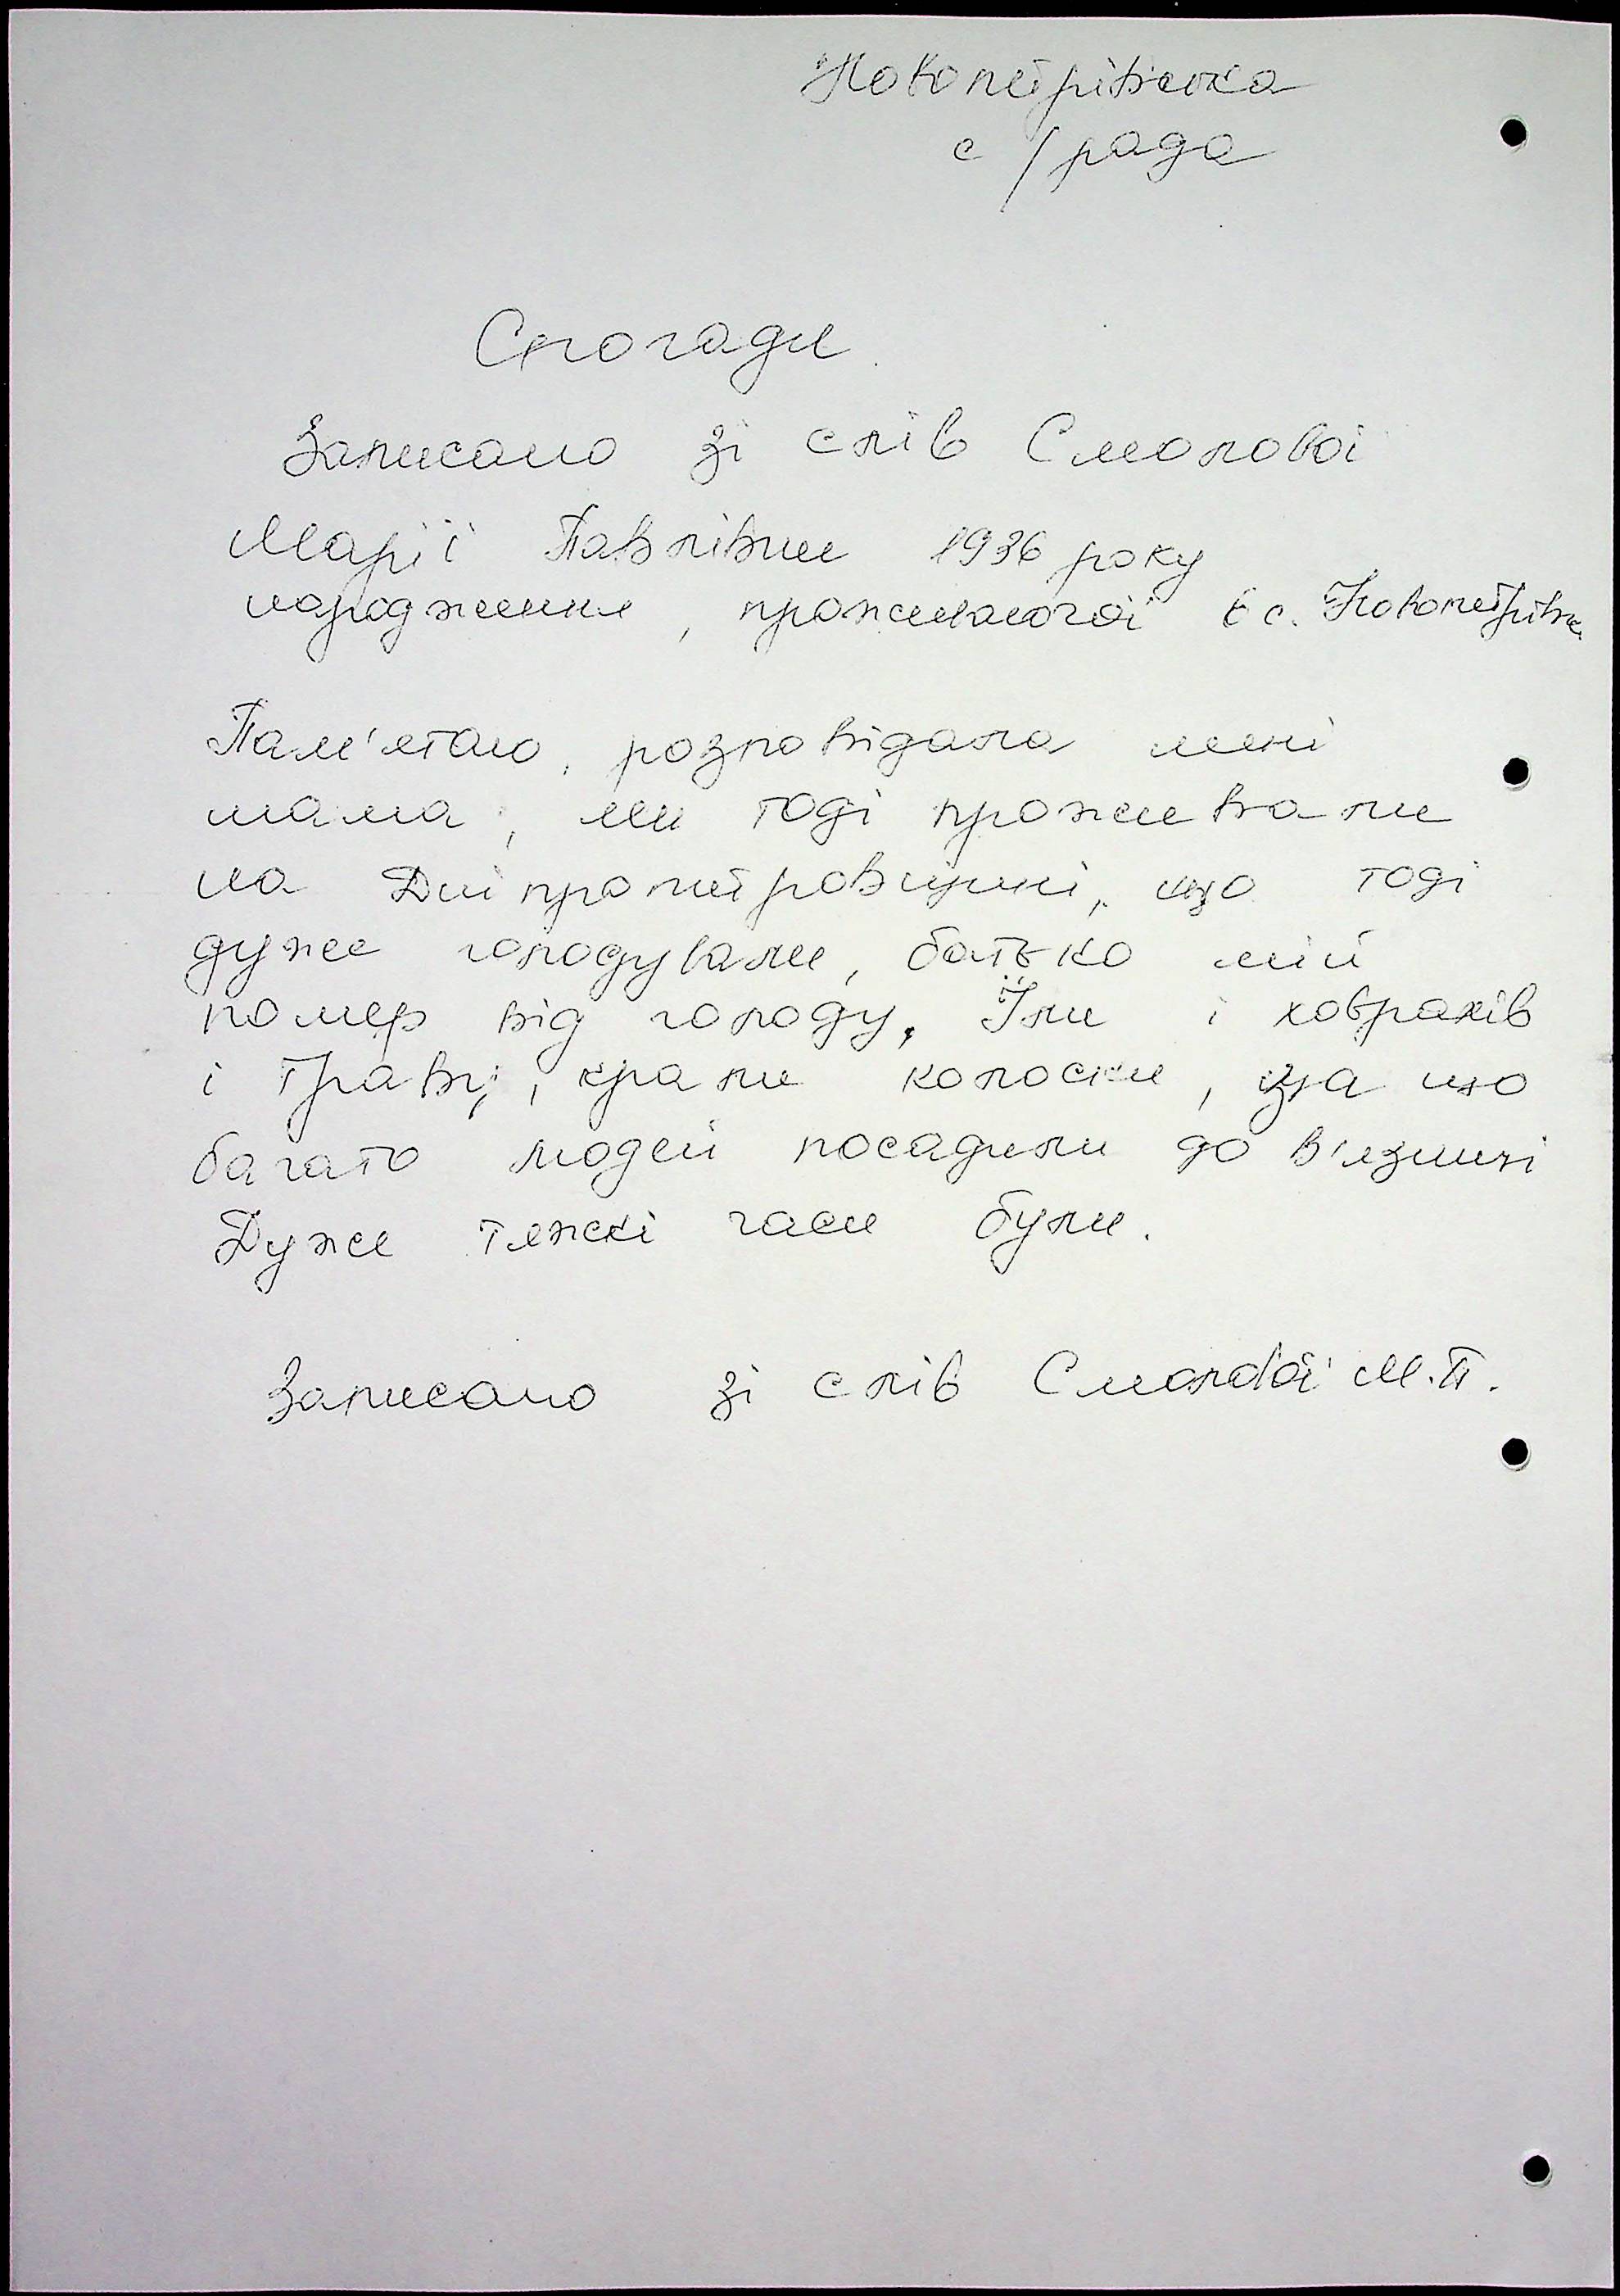 Новопетрівська
с/рада
Спогади.
Записано зі слів Смолової
Марії Павлівни 1936 року
народження, проживаючої в с. Новопетрівка
Пам'ятаю, розповідала мені
мама, ми тоді проживали
на Дніпропетровщині, що тоді
дуже голодували, батько мій
помер від голоду. Їли і ховрахів
і траву, крали колоски, за що
багато людей посадили до в'язниці
Дуже тяжкі часи були.
Записано зі слів Смолової М.П.